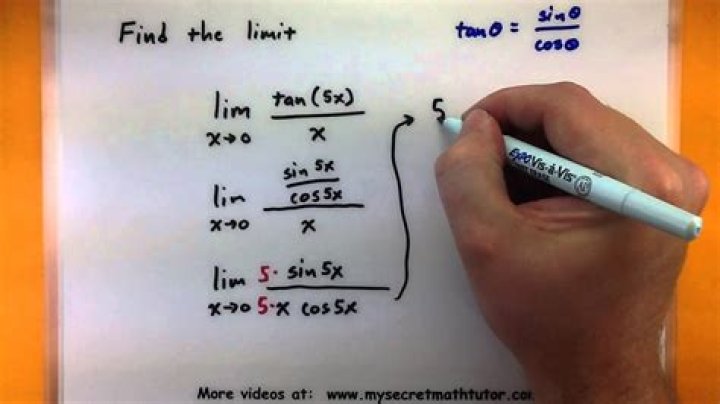 Find the limit
tanθ = sinθ / cosθ
lim x→0 tan(5x) / x
lim x→0 sin 5x / cos 5x / x
lim x→0 5· sin 5x / 5·x cos 5x
5
EXPO Vis-à-Vis
More videos at: www.mysecretmathtutor.com